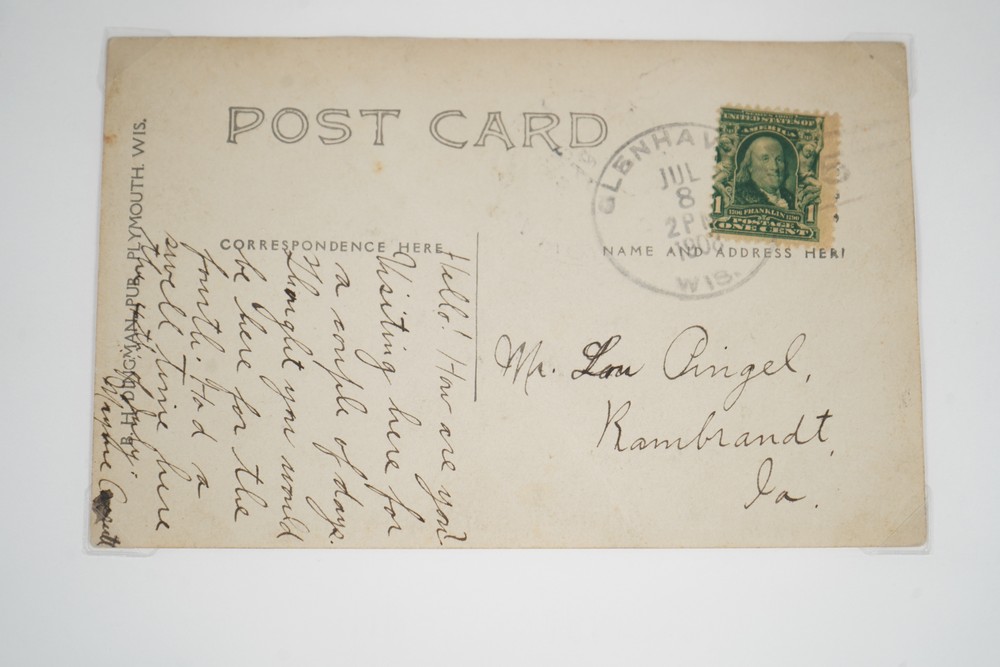 POST CARD
CORRESPONDENCE HERE
NAME AND ADDRESS HERE
PUB. PLYMOUTH. WIS.
GLENHAV
JUL
8
2 PM
WIS.
UNITED STATES OF
AMERICA
1 FRANKLIN 1
POSTAGE
ONE CENT
Mr. Lou Pingel,
Rambrandt,
Ia.
Hello! How are you?
Visiting here for
a couple of days.
Thought you would
be here for the
fourth. Had a
swell time here
the of July.
Mayme